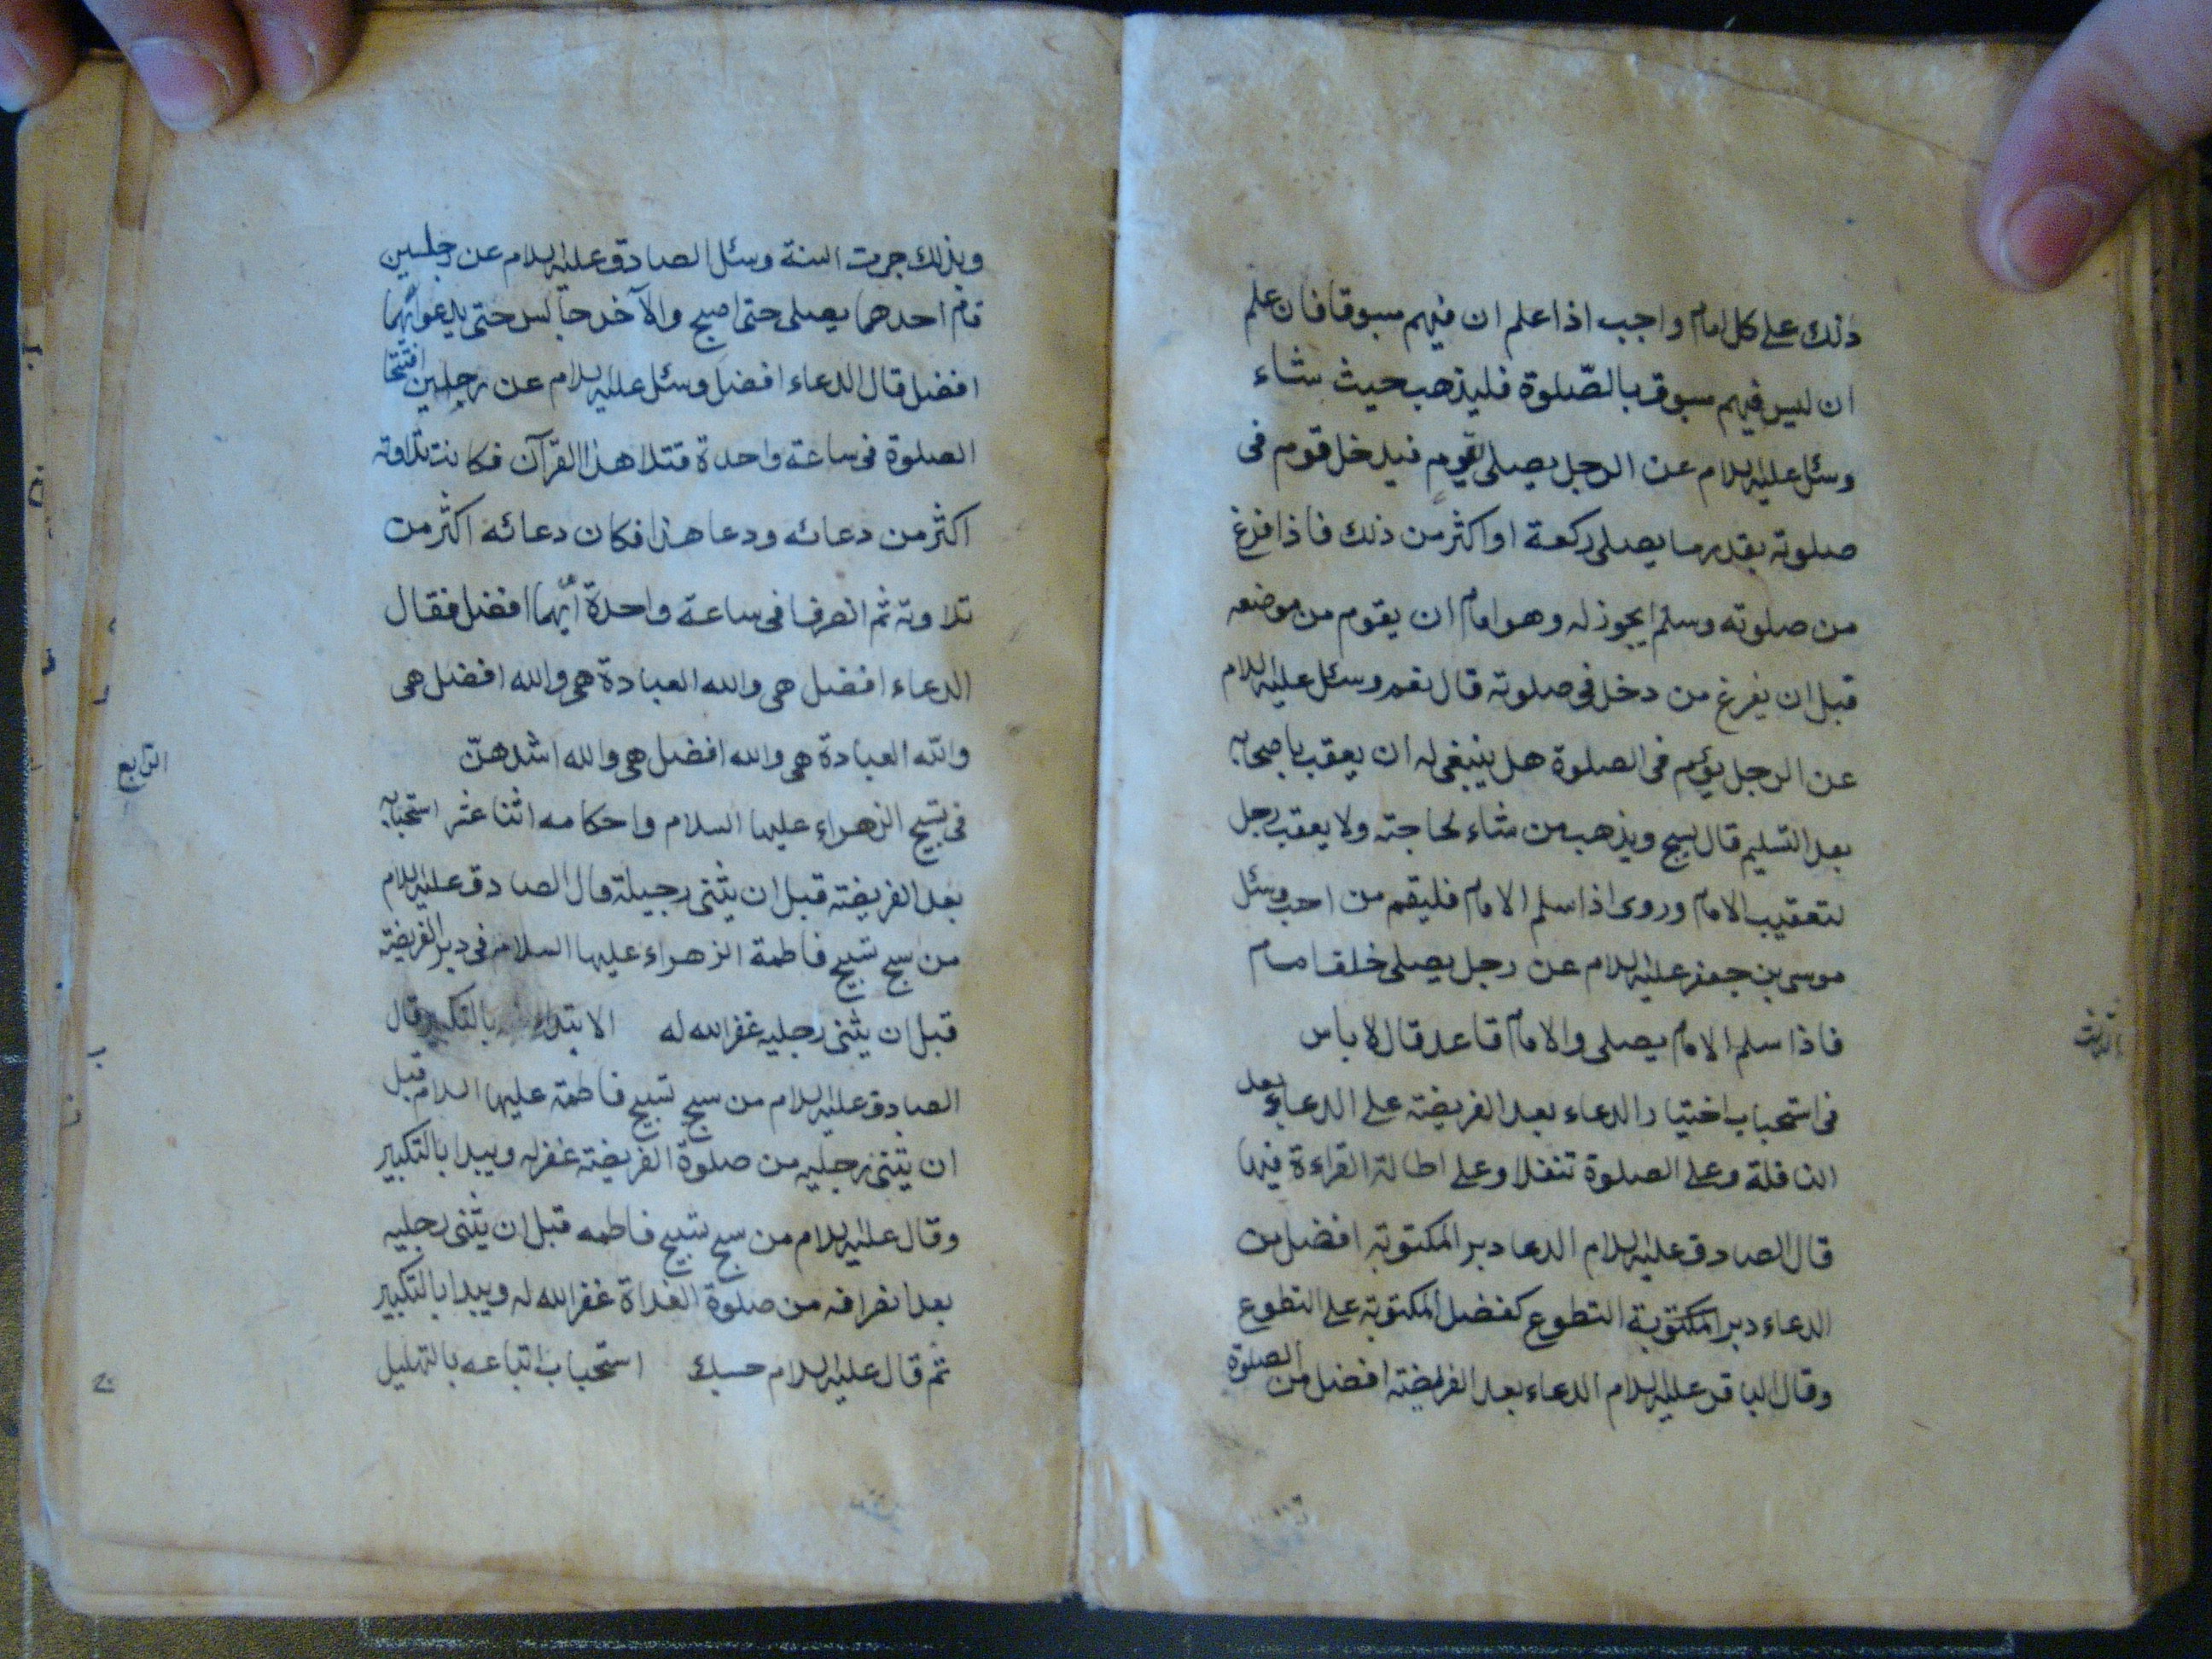 ذلك على كل امام واجب اذا علم ان فيهم مسبوقا فان علم
ان ليس فيهم مسبوق بالصّلوة فليذهب حيث شاء
وسئل عليه السلام عن الرجل يصلى بقوم فيدخل قوم فى
صلوته بقدر ما يصلى ركعة او اكثر من ذلك فاذا فرغ
من صلوته وسلم ايجوز له وهو امام ان يقوم من موضعه
قبل ان يفرغ من دخل فى صلوته قال نعم وسئل عليه السلام
عن الرجل يؤم فى الصلوة هل ينبغى له ان يعقب باصحابه
بعد التسليم قال يسبح ويذهب من شاء لحاجته ولا يعقب رجل
لتعقيب الامام وروى اذا سلم الامام فليقم من احب وسئل
موسى بن جعفر عليه السلام عن رجل يصلى خلف امام
فاذا سلم الامام يصلى والامام قاعد قال لا باس
فى استحباب اختيار الدعاء بعد الفريضة على الدعاء بعد
النافلة وعلى الصلوة تنفلا وعلى اطالة القراءة فيها
قال الصادق عليه السلام الدعا دبر المكتوبة افضل من
الدعاء دبر المكتوبة التطوع كفضل المكتوبة على التطوع
وقال الباقر عليه السلام الدعاء بعد الفريضة افضل من الصلوة
وبذلك جرت السنة وسئل الصادق عليه السلام عن رجلين
قام احدهما يصلى حتى اصبح والآخر جالس حتى يدعو ايّهما
افضل قال الدعاء افضل وسئل عليه السلام عن رجلين افتتحا
الصلوة فى ساعة واحدة فتلا هذا القرآن فكانت تلاوته
اكثر من دعائه ودعا هذا فكان دعائه اكثر من
تلاوته ثم انصرفا فى ساعة واحدة أيّهما افضل فقال
الدعاء افضل هى والله العبادة هى والله افضل هى
والله العبادة هى والله افضل هى والله اشدهنّ
الرابع
فى تسبيح الزهراء عليها السلام واحكامه اثنا عشر استحبابه
بعد الفريضة قبل ان يثنى رجيلة قال الصادق عليه السلام
من سبح تسبيح فاطمة الزهراء عليها السلام فى دبر الفريضة
قبل ان يثنى رجليه غفر الله له الابتداء بالتكبير قال
الصادق عليه السلام من سبح تسبيح فاطمة عليها السلام قبل
ان يثنى رجليه من صلوة الفريضة غفر له ويبدا بالتكبير
وقال عليه السلام من سبح تسبيح فاطمه قبل ان يثنى رجليه
بعد انصرافه من صلوة الغداة غفر الله له ويبدا بالتكبير
ثم قال عليه السلام حسبك استحباب اتباعه بالتهليل